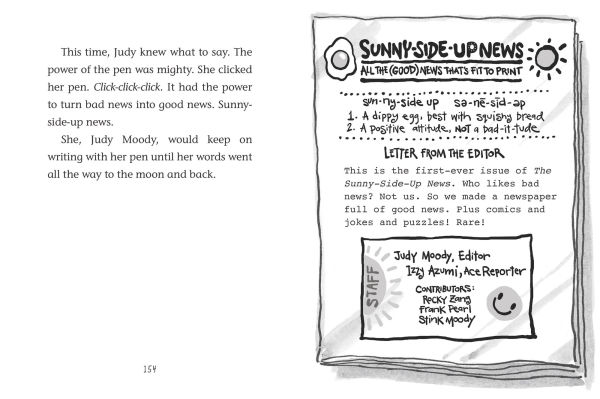 This time, Judy knew what to say. The
power of the pen was mighty. She clicked
her pen. Click-click-click. It had the power
to turn bad news into good news. Sunny-
side-up news.
She, Judy Moody, would keep on
writing with her pen until her words went
all the way to the moon and back.
154
SUNNY-SIDE-UP NEWS
ALL THE (GOOD) NEWS THAT'S FIT TO PRINT
sun·ny-side up sə-nē-sīd-əp
1. A dippy egg, best with squishy bread
2. A positive attitude, NOT a bad-it-tude
LETTER FROM THE EDITOR
This is the first-ever issue of The
Sunny-Side-Up News. Who likes bad
news? Not us. So we made a newspaper
full of good news. Plus comics and
jokes and puzzles! Rare!
STAFF
Judy Moody, Editor
Izzy Azumi, Ace Reporter
CONTRIBUTORS:
Rocky Zang
Frank Pearl
Stink Moody